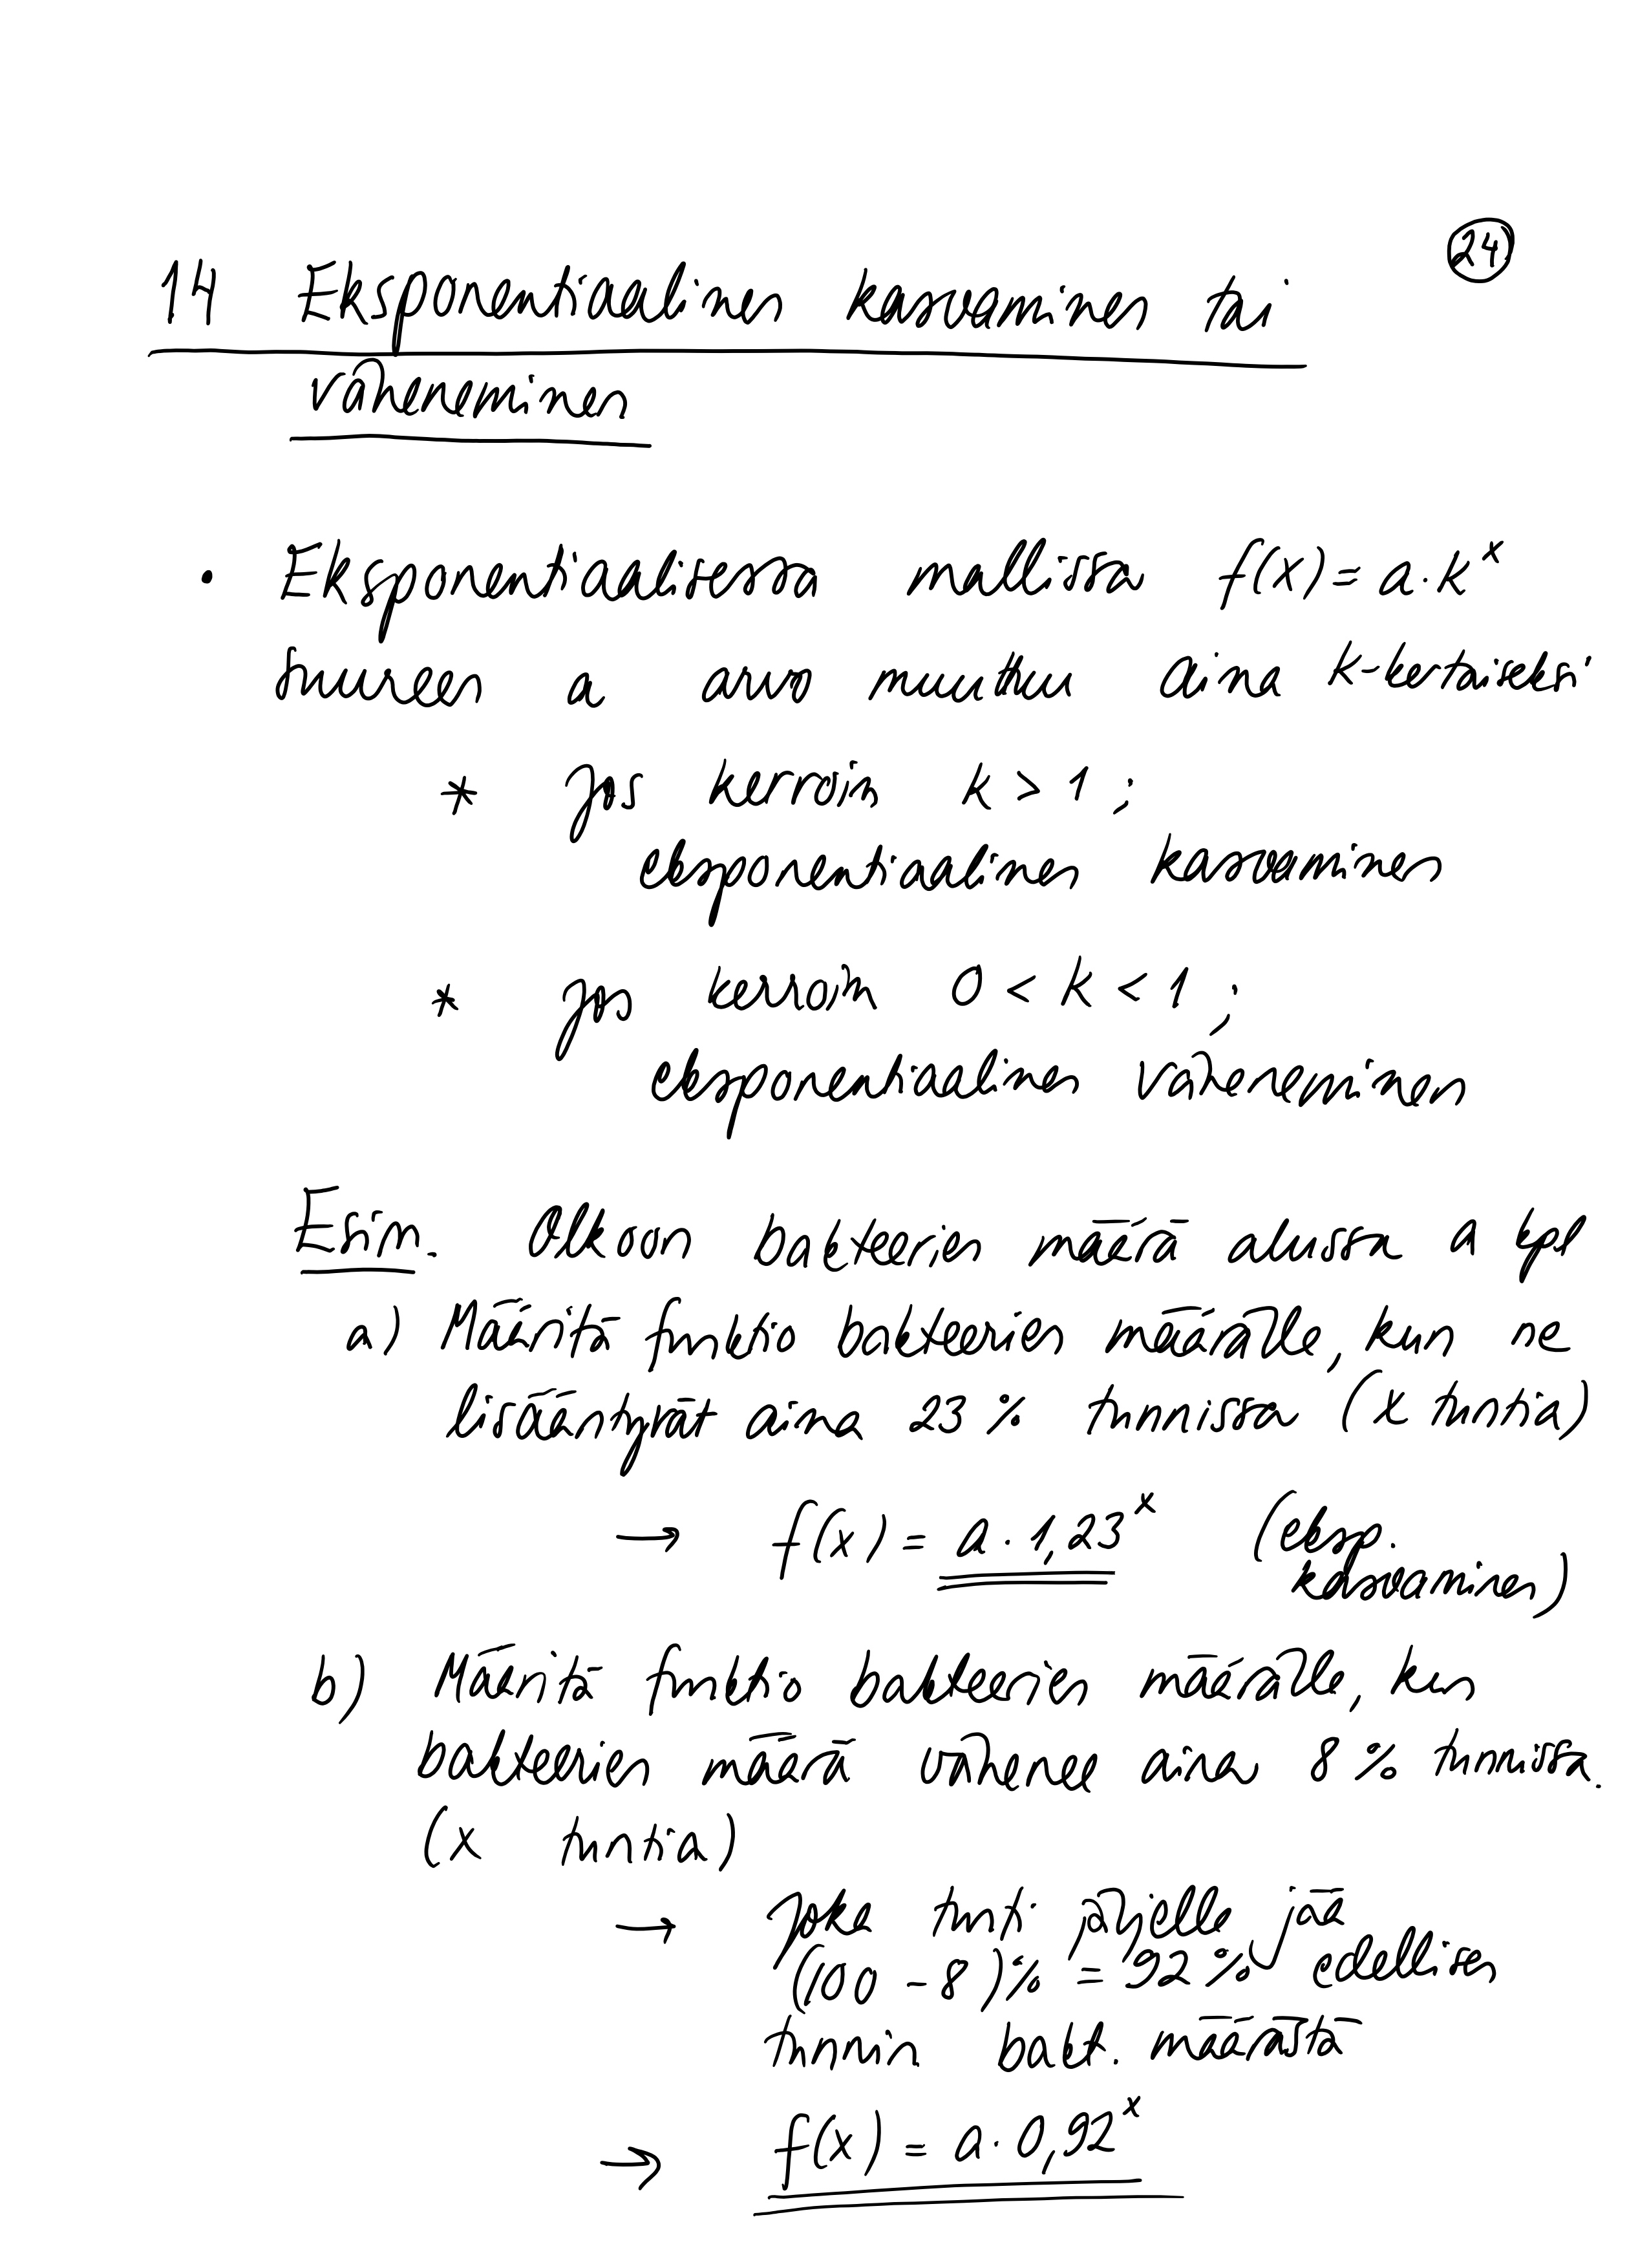 24
14 Eksponentiaalinen kasvaminen tai
väheneminen
• Eksponentiaalisessa mallissa f(x) = a · k^x
suureen a arvo muuttuu aina k-kertaiseksi
* Jos kerroin k > 1 ;
eksponentiaalinen kasvaminen
* Jos kerroin 0 < k < 1 ;
eksponentiaalinen väheneminen
Esim. Olkoon bakteerien määrä alussa a kpl
a) Määritä funktio bakteerien määrälle, kun ne
lisääntyvät aina 23 % tunnissa (x tuntia)
→ f(x) = a · 1,23^x (eksp.
kasvaminen)
b) Määritä funktio bakteerien määrälle, kun
bakteerien määrä vähenee aina 8 % tunnissa.
(x tuntia)
→ Joka tunti jäljelle jää
(100 - 8)% = 92 % edellisen
tunnin bakt. määrästä
→ f(x) = a · 0,92^x